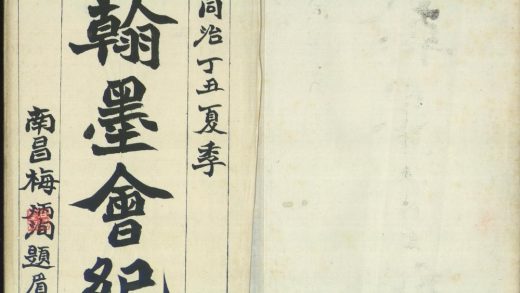 同治丁丑夏季
翰墨會
南昌梅題眉